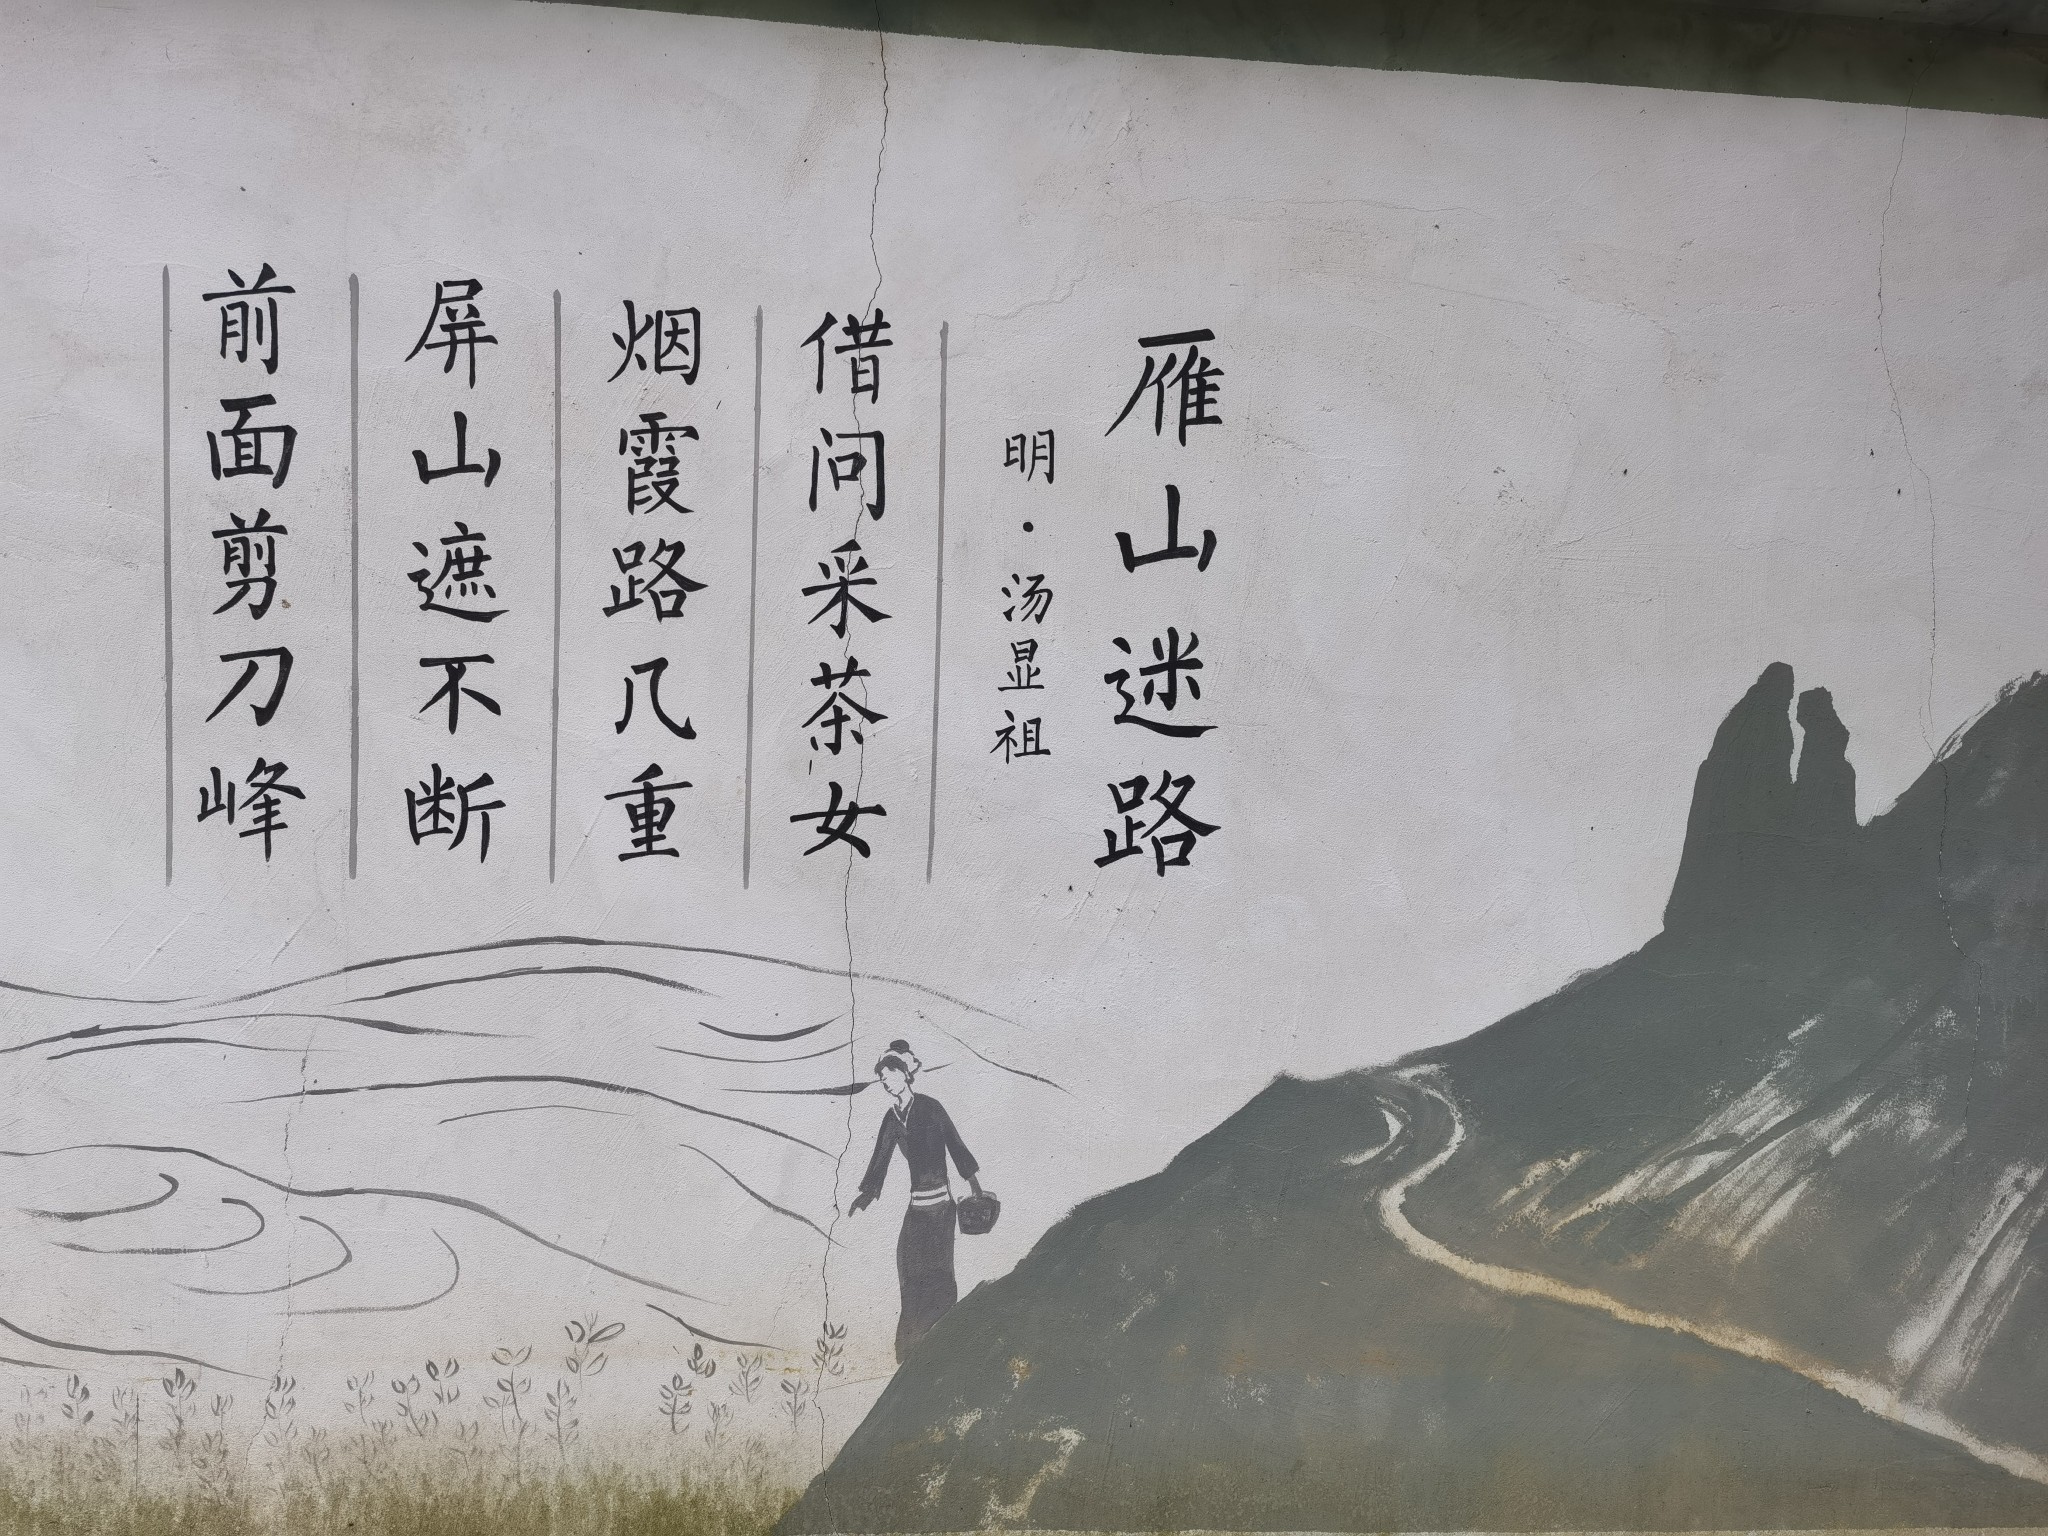 雁山迷路
明·汤显祖
借问采茶女
烟霞路几重
屏山遮不断
前面剪刀峰